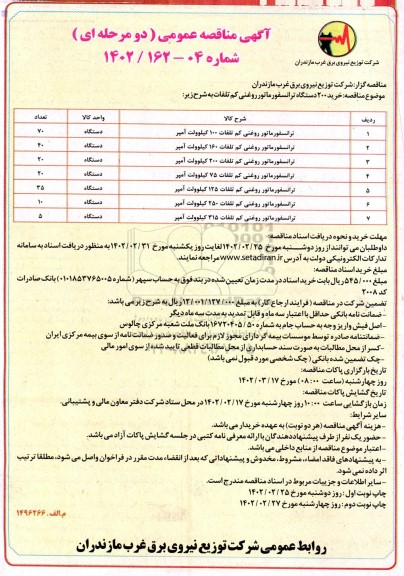 آگهی مناقصه عمومی ( دو مرحله ای )
شماره ۰۴ – ۱۶۲ / ۱۴۰۲
شرکت توزیع نیروی برق غرب مازندران
مناقصه گزار: شرکت توزیع نیروی برق غرب مازندران
موضوع مناقصه: خرید ۲۰۰ دستگاه ترانسفورماتور روغنی کم تلفات به شرح زیر:
ردیف شرح کالا واحد کالا تعداد
۱ ترانسفورماتور روغنی کم تلفات ۱۰۰ کیلوولت آمپر دستگاه ۷۰
۲ ترانسفورماتور روغنی کم تلفات ۱۶۰ کیلوولت آمپر دستگاه ۴۰
۳ ترانسفورماتور روغنی کم تلفات ۲۰۰ کیلوولت آمپر دستگاه ۲۰
۴ ترانسفورماتور روغنی کم تلفات ۷۵ کیلوولت آمپر دستگاه ۲۰
۵ ترانسفورماتور روغنی کم تلفات ۱۲۵ کیلوولت آمپر دستگاه ۳۵
۶ ترانسفورماتور روغنی کم تلفات ۲۵۰ کیلوولت آمپر دستگاه ۱۰
۷ ترانسفورماتور روغنی کم تلفات ۳۱۵ کیلوولت آمپر دستگاه ۵
مهلت خرید و نحوه دریافت اسناد مناقصه:
داوطلبان می توانند از روز دوشنبه مورخ ۱۴۰۲/۰۲/۲۵ لغایت روز یکشنبه مورخ ۱۴۰۲/۰۲/۳۱ به منظور دریافت اسناد به سامانه
تدارکات الکترونیکی دولت به آدرس www.setadiran.ir مراجعه نمایند.
مبلغ خرید اسناد مناقصه:
مبلغ ۵۴۵/۰۰۰ ریال بابت خرید اسناد در مدت زمان تعیین شده در بند فوق به حساب سپهر (شماره ۰۱۰۱۸۵۳۷۶۵۰۰۵) بانک صادرات
کد ۲۰۰۸
تضمین شرکت در مناقصه (فرایند ارجاع کار) به مبلغ ۱۲/۰۰۱/۱۲۷/۰۰۰ ریال به شرح زیر می باشد:
- ضمانت نامه بانکی حداقل با اعتبار سه ماه و قابل تمدید به مدت سه ماه دیگر
- اصل فیش واریز وجه به حساب جام به شماره ۱۶۷۲۰۴۰۵/۵۰ بانک ملت شعبه مرکزی چالوس
- ضمانتنامه صادره توسط موسسات بیمه گر دارای مجوز لازم برای فعالیت و صدور ضمانت نامه از سوی بیمه مرکزی ایران
- کسر از محل مطالبات به صورت سند حسابداری از محل مطالبات قطعی تایید شده از سوی امور مالی
- چک تضمین شده بانکی (چک شخصی مورد قبول نمی باشد)
تاریخ بارگزاری پاکات مناقصه:
روز چهارشنبه (ساعت ۰۸:۰۰) مورخ ۱۴۰۲/۰۳/۱۷
تاریخ گشایش پاکات مناقصه:
زمان بازگشایی ساعت ۱۰:۰۰ روز چهارشنبه مورخ ۱۴۰۲/۰۲/۱۷ در محل ستاد شرکت دفتر معاون مالی و پشتیبانی.
سایر شرایط:
- هزینه آگهی مناقصه (هر دو نوبت) به عهده خریدار می باشد.
- حضور یک نفر از طرف پیشنهاددهندگان با ارائه معرفی نامه کتبی در جلسه گشایش پاکات آزاد می باشد.
- اعتبار موضوع مناقصه از منابع داخلی می باشد.
- به پیشنهادهای فاقد امضاء، مشروط، مخدوش و پیشنهاداتی که بعد از انقضاء مدت مقرر در فراخوان واصل می شود، مطلقا ترتیب
اثر داده نمی شود.
- سایر اطلاعات و جزییات مربوط در اسناد مناقصه مندرج است.
چاپ نوبت اول: روز دوشنبه مورخ ۱۴۰۲/۰۲/۲۵
چاپ نوبت دوم: روز چهارشنبه مورخ ۱۴۰۲/۰۲/۲۷
م.الف. ۱۴۹۶۲۶۶
روابط عمومی شرکت توزیع نیروی برق غرب مازندران